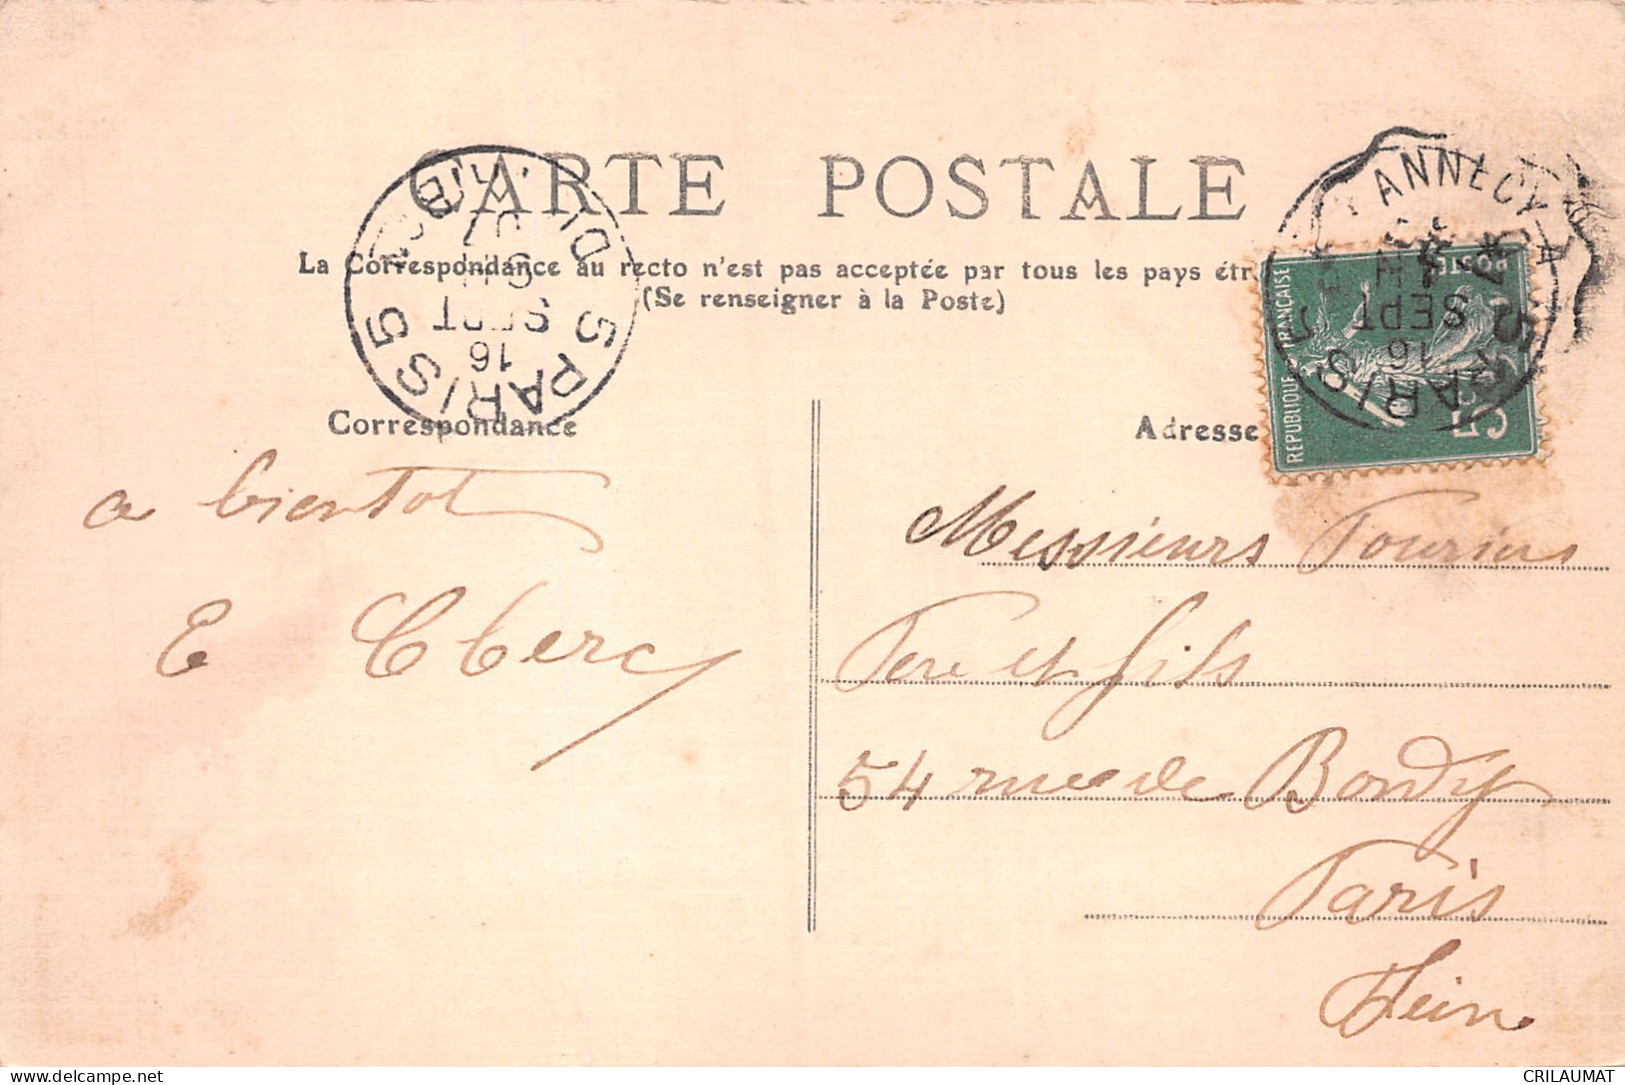 CARTE POSTALE
La Correspondance au recto n'est pas acceptée par tous les pays étr
(Se renseigner à la Poste)
Correspondance
Adresse
a bientot
E Clerc
Messieurs
Pere et fils
54 rue de Bondy
Paris
Seine
REPUBLIQUE FRANÇAISE
POSTES
5c
PARIS
16
SEPT
PARIS
16
SEPT
07
ANNECY A
CRILAUMAT